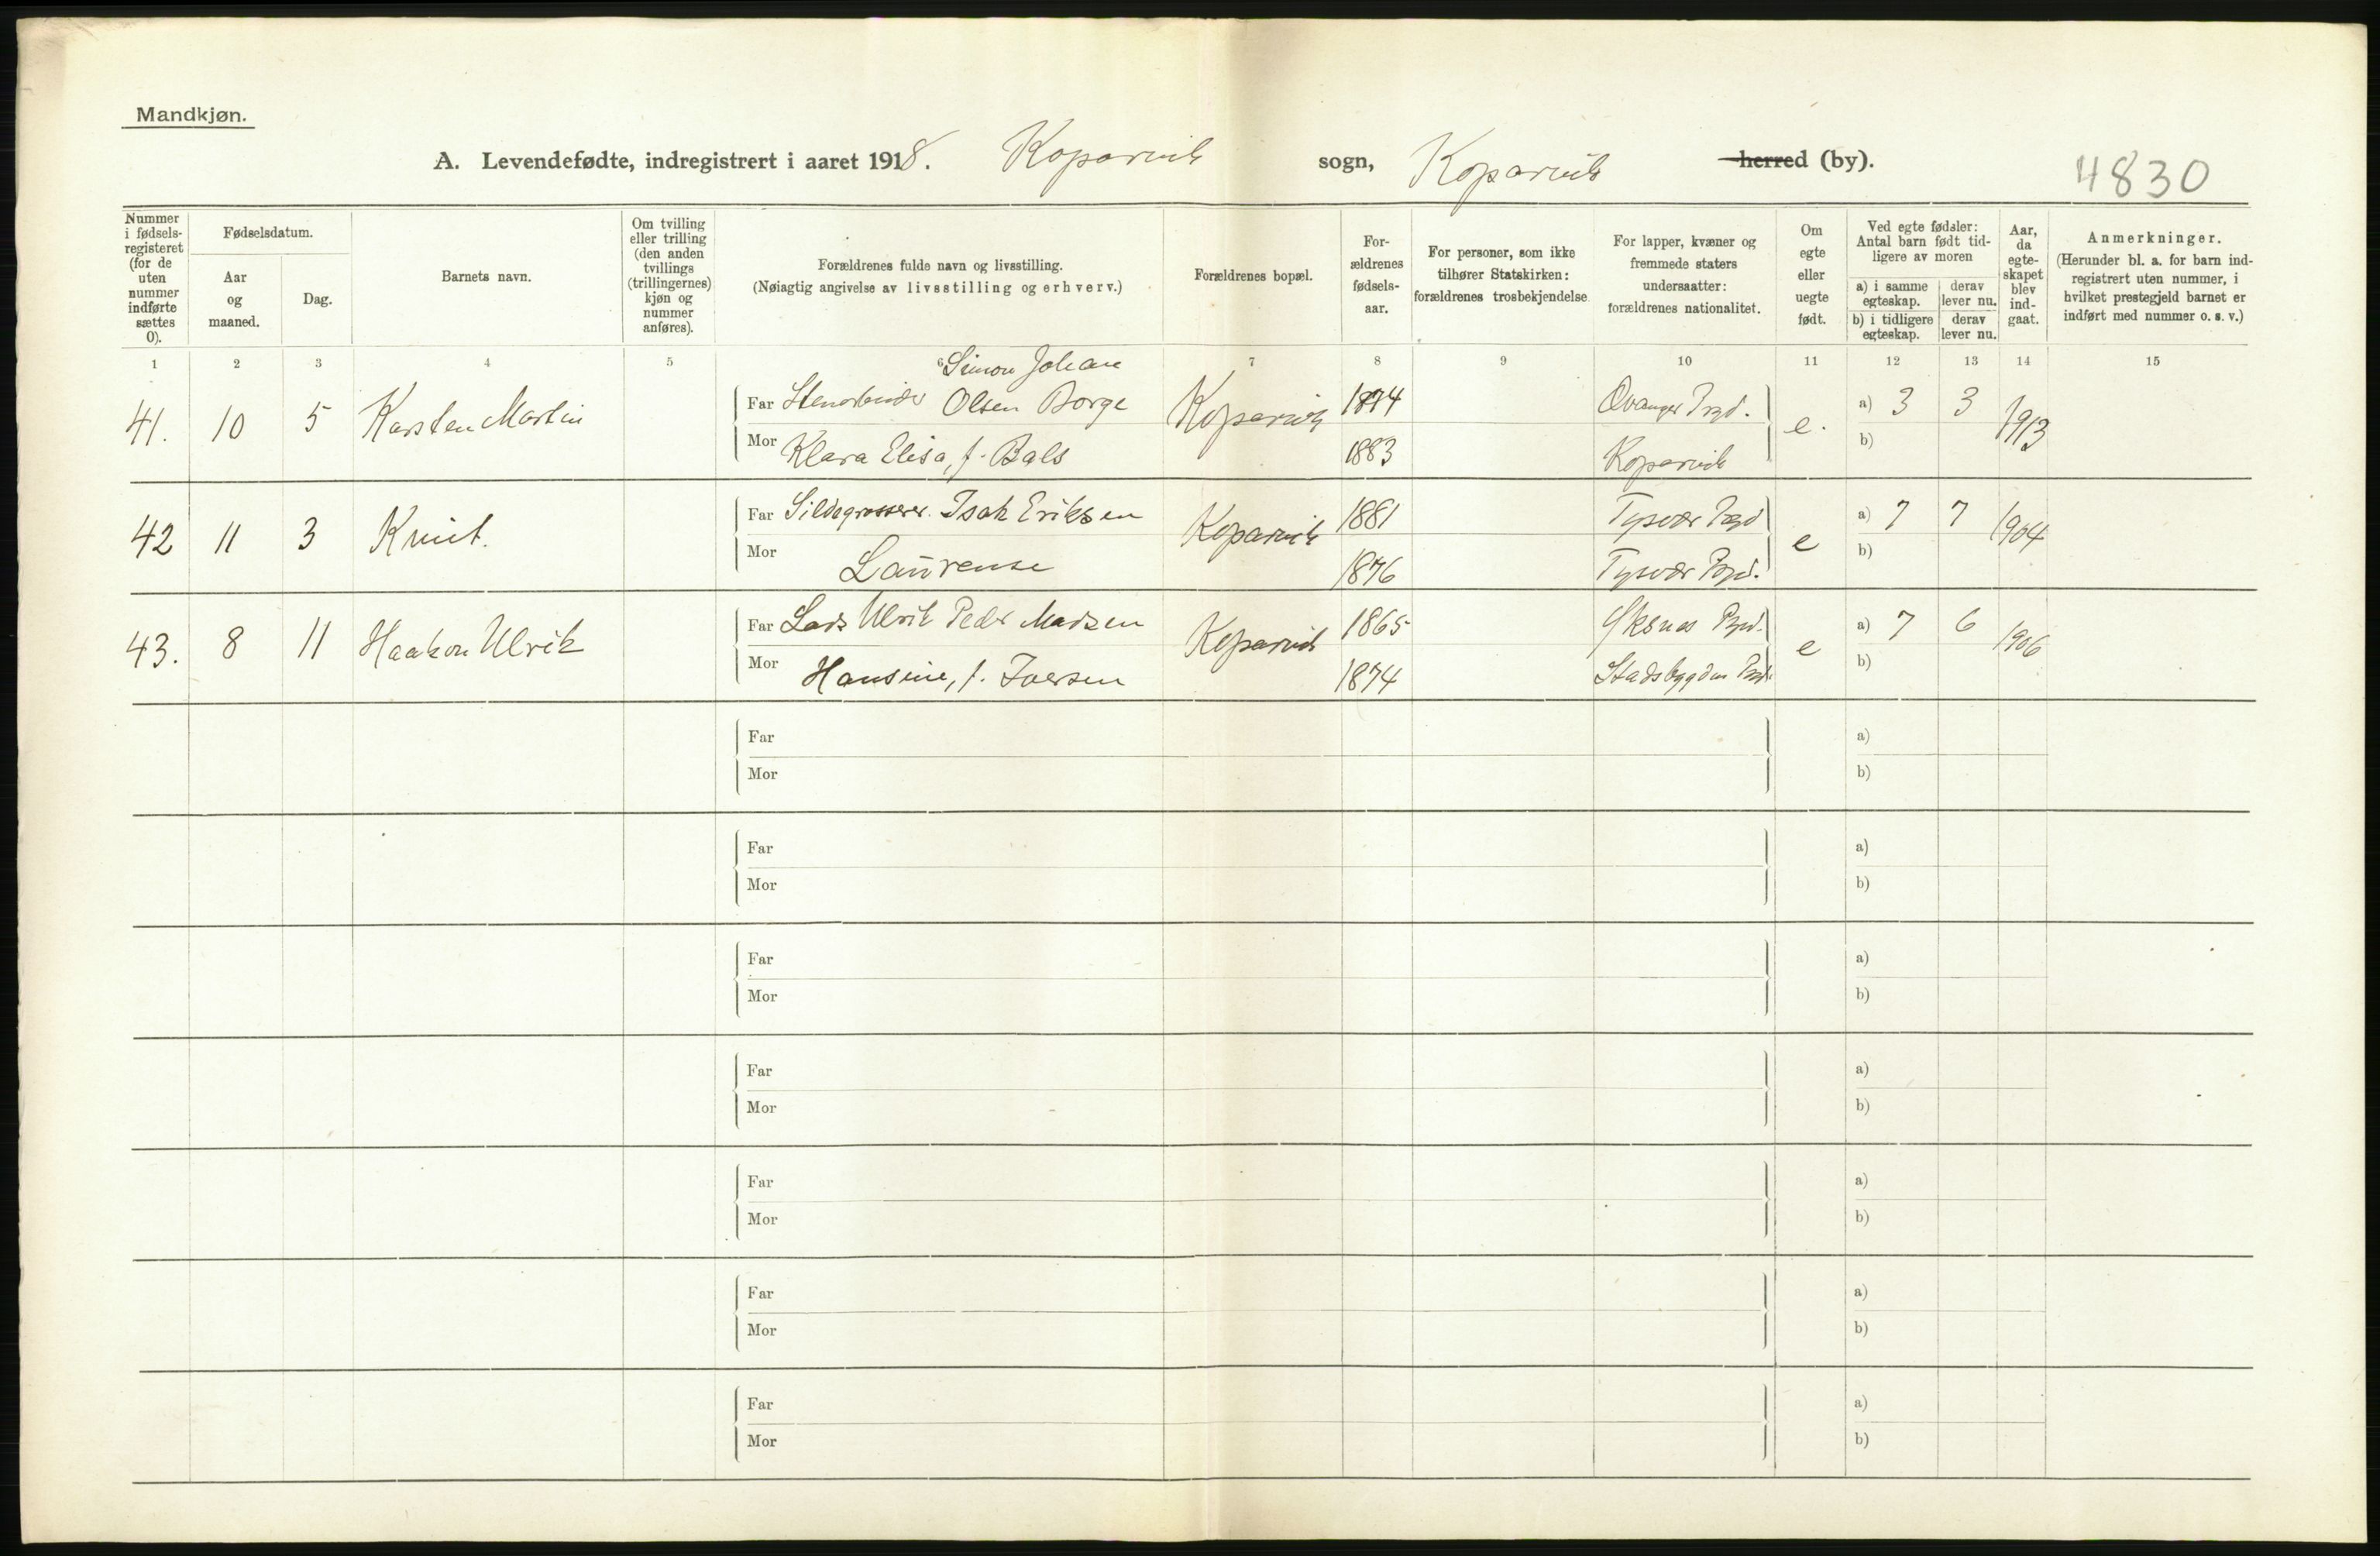 Mandkjøn.
A. Levendefødte, indregistrert i aaret 1918. Kopervik sogn, Kopervik herred (by).
4830
Nummer i fødsels-registeret (for de uten nummer indførte sættes 0).
Fødselsdatum.
Aar og maaned.
Dag.
Barnets navn.
Om tvilling eller trilling (den anden tvillings (trillingernes) kjøn og nummer anføres).
Forældrenes fulde navn og livsstilling.
(Nøiagtig angivelse av livsstilling og erhverv.)
Forældrenes bopæl.
For-ældrenes fødsels-aar.
For personer, som ikke tilhører Statskirken: forældrenes trosbekjendelse
For lapper, kvæner og fremmede staters undersaatter: forældrenes nationalitet.
Om egte eller uegte født.
Ved egte fødsler: Antal barn født tid-ligere av moren
a) i samme egteskap.
derav lever nu.
b) i tidligere egteskap.
derav lever nu.
Aar, da egte-skapet blev ind-gaat.
Anmerkninger.
(Herunder bl. a. for barn ind-registrert uten nummer, i hvilket prestegjeld barnet er indført med nummer o. s. v.)
1 2 3 4 5 6 7 8 9 10 11 12 13 14 15
Simon Johan
41. 10 5 Karsten Martin Far Stenarbeider Olsen Borge Kopervik 1874 Prgd. e. a) 3 3 1913
Mor Klara Elisa, f. Bals 1883 Kopervik b)
42 11 3 Knut. Far Sildegrosserer Isak Eriksen Kopervik 1881 Tysvær Prgd e a) 7 7 1904
Mor Laurense 1876 Tysvær Prgd. b)
43. 8 11 Haakon Ulrik Far Lods Ulrik Peder Madsen Kopervik 1865 Øksnes Prgd. e a) 7 6 1906
Mor Hansine, f. Iversen 1874 Stadsbygden Prgd. b)
Far a)
Mor b)
Far a)
Mor b)
Far a)
Mor b)
Far a)
Mor b)
Far a)
Mor b)
Far a)
Mor b)
Far a)
Mor b)